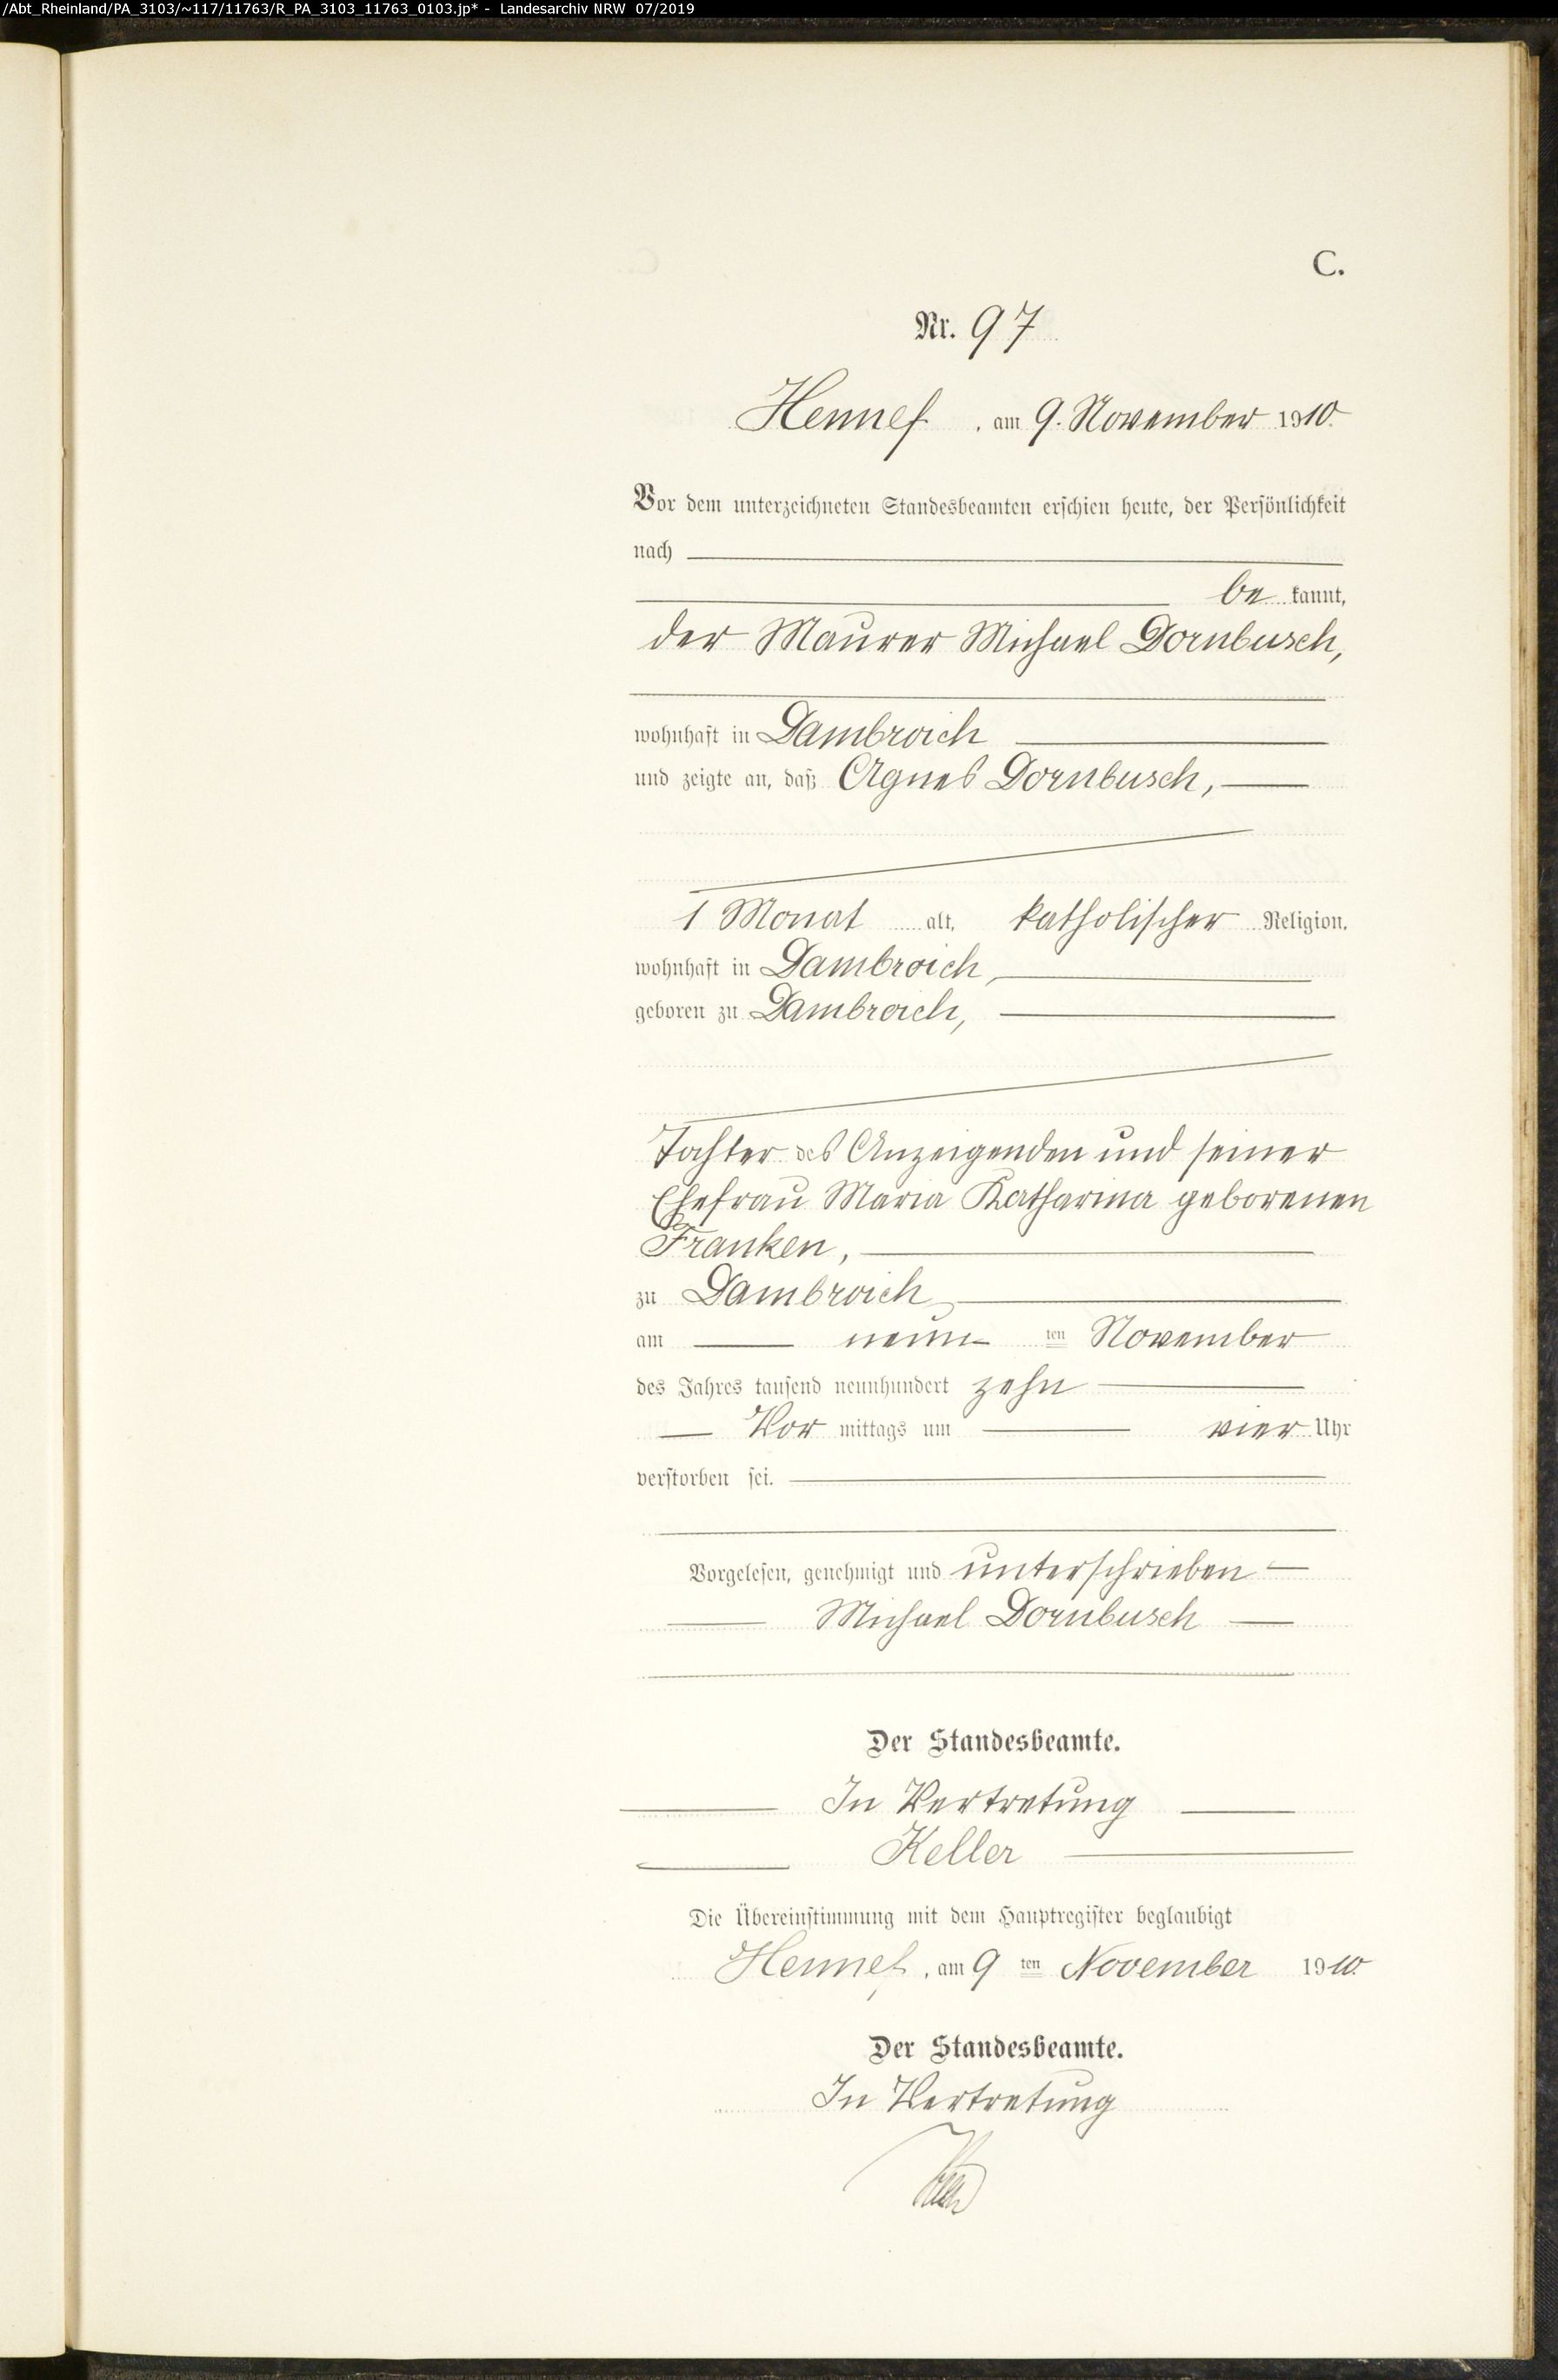 /Abt_Rheinland/PA_3103/~117/11763/R_PA_3103_11763_0103.jp* - Landesarchiv NRW 07/2019
C.
Nr. 97
Hennef, am 9. November 1910.
Vor dem unterzeichneten Standesbeamten erschien heute, der Persönlichkeit
nach
be kannt,
der Maurer Michael Dornbusch,
wohnhaft in Dambroich
und zeigte an, daß Agnes Dornbusch,
1 Monat alt, katholischer Religion,
wohnhaft in Dambroich,
geboren zu Dambroich,
Tochter des Anzeigenden und seiner
Ehefrau Maria Katharina geborenen
Franken,
zu Dambroich
am neun ten November
des Jahres tausend neunhundert zehn
Vor mittags um vier Uhr
verstorben sei.
Vorgelesen, genehmigt und unterschrieben
Michael Dornbusch
Der Standesbeamte.
In Vertretung
Keller
Die Übereinstimmung mit dem Hauptregister beglaubigt
Hennef, am 9 ten November 1910.
Der Standesbeamte.
In Vertretung